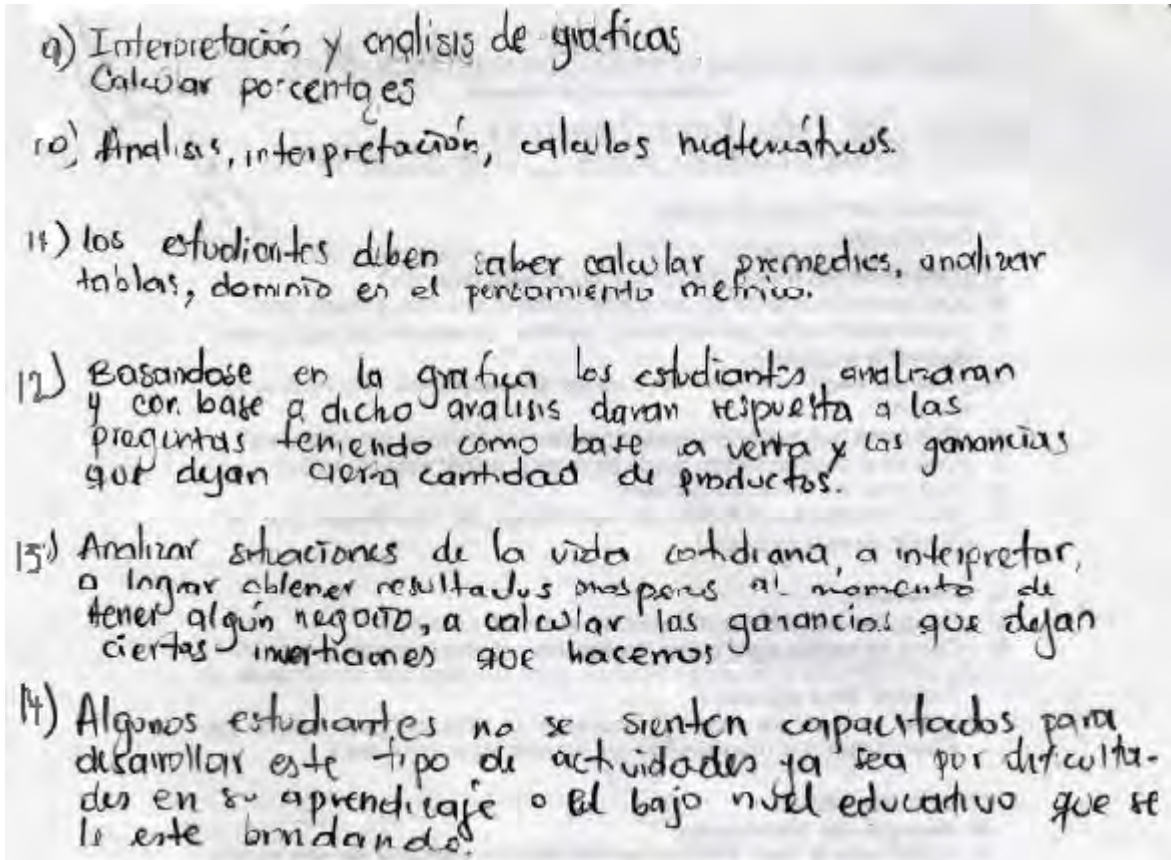 9) Interpretación y analisis de graficas
Calcular porcentages
10) Analisis, interpretación, calculos matemáticos.
11) los estudiantes diben saber calcular premedios, analizar
tablas, dominio en el pensamiento metrico.
12) Basandose en la grafica los estudiantes analizaran
y con base a dicho analisis daran respuesta a las
preguntas teniendo como base la venta y las ganancias
que dejan cierta cantidad de productos.
13) Analizar situaciones de la vida cotidiana, a interpretar,
a lograr obtener resultados al momento de
tener algún negocio, a calcular las ganancias que dejan
ciertas inverticiones que hacemos
14) Algunos estudiantes no se sienten capacitados para
desarrollar este tipo de actividades ya sea por dificulta-
des en su aprendicaje o el bajo nivel educativo que se
le este brindando.